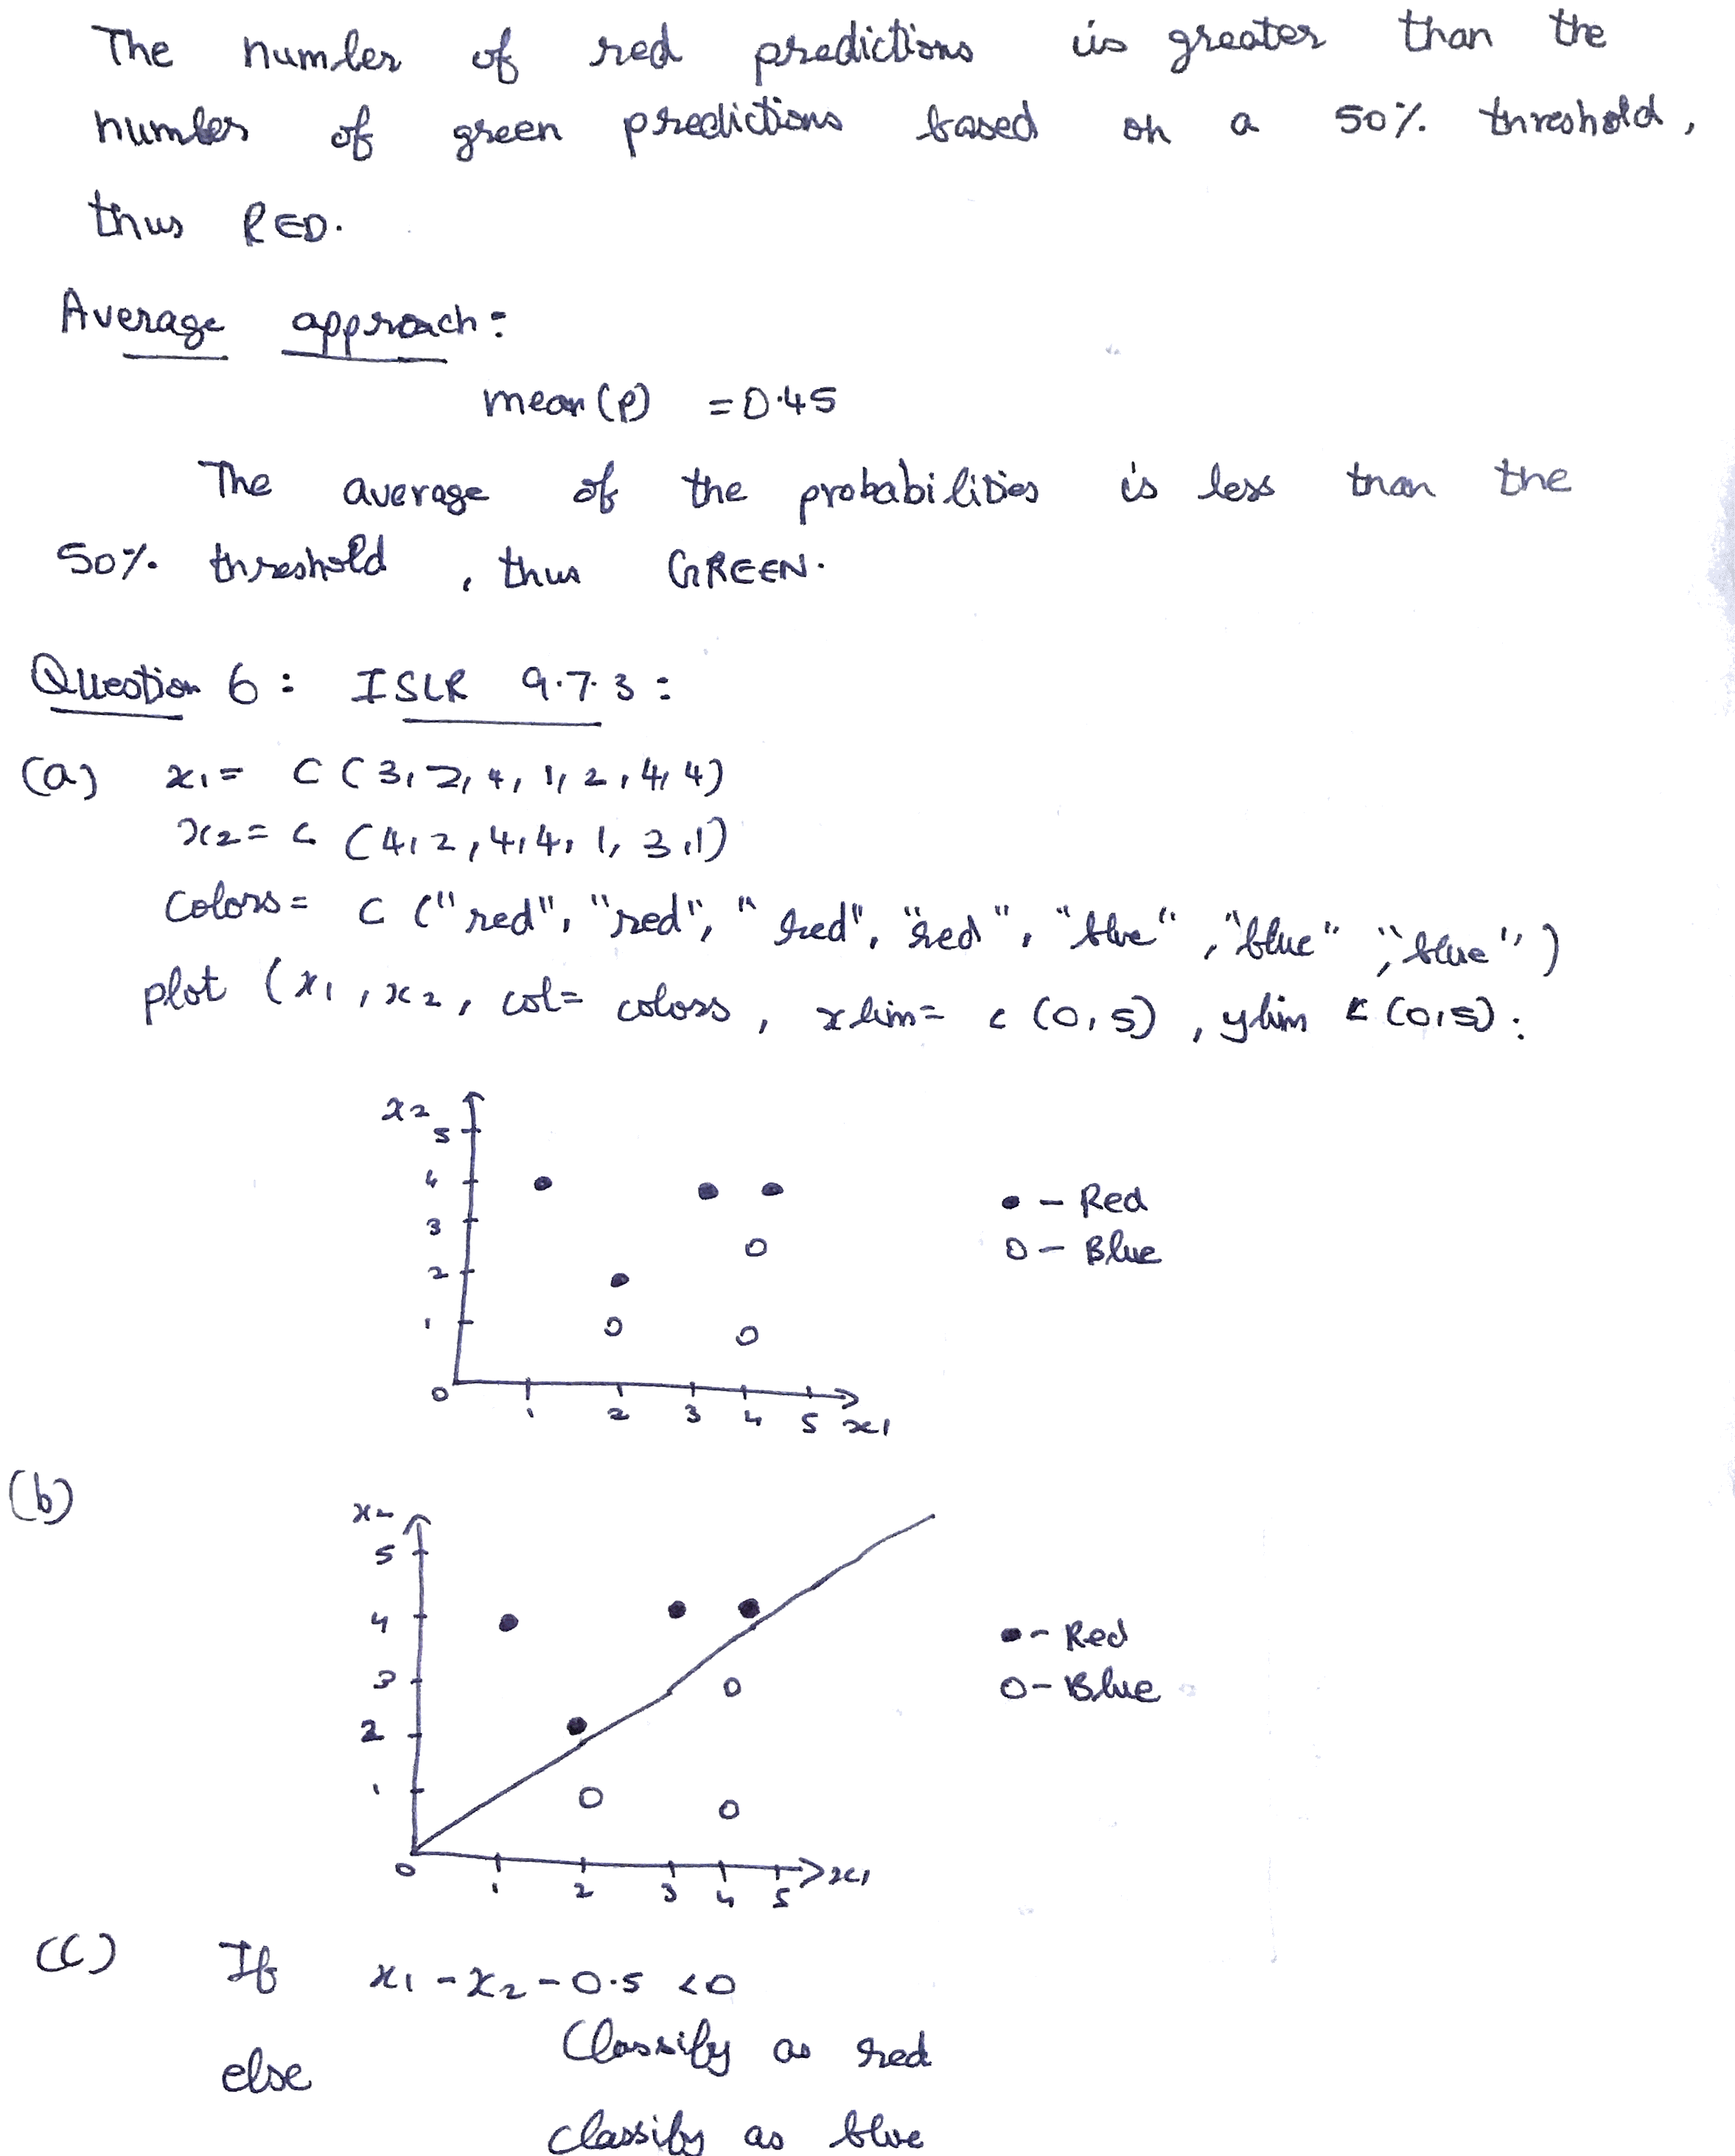 The number of red predictions is greater than the
number of green predictions based on a 50% threshold,
thus RED.
Average approach:
mean(P) = 0.45
The average of the probabilities is less than the
50% threshold, thus GREEN.
Question 6: ISLR 9.7.3:
(a) x1 = C(3,2,4,1,2,4,4)
x2 = c(4,2,4,4,1,3,1)
Colors = C("red", "red", "red", "red", "blue", "blue", "blue")
plot (x1, x2, col= colors, xlim= c(0,5), ylim c(0,5):
x2
5
4
3
2
1
0 1 2 3 4 5 x1
● - Red
O - Blue
(b)
x2
5
4
3
2
1
0 1 2 3 4 5 x1
● - Red
O - Blue
(C) If x1 - x2 - 0.5 <0
Classify as red
else
classify as blue